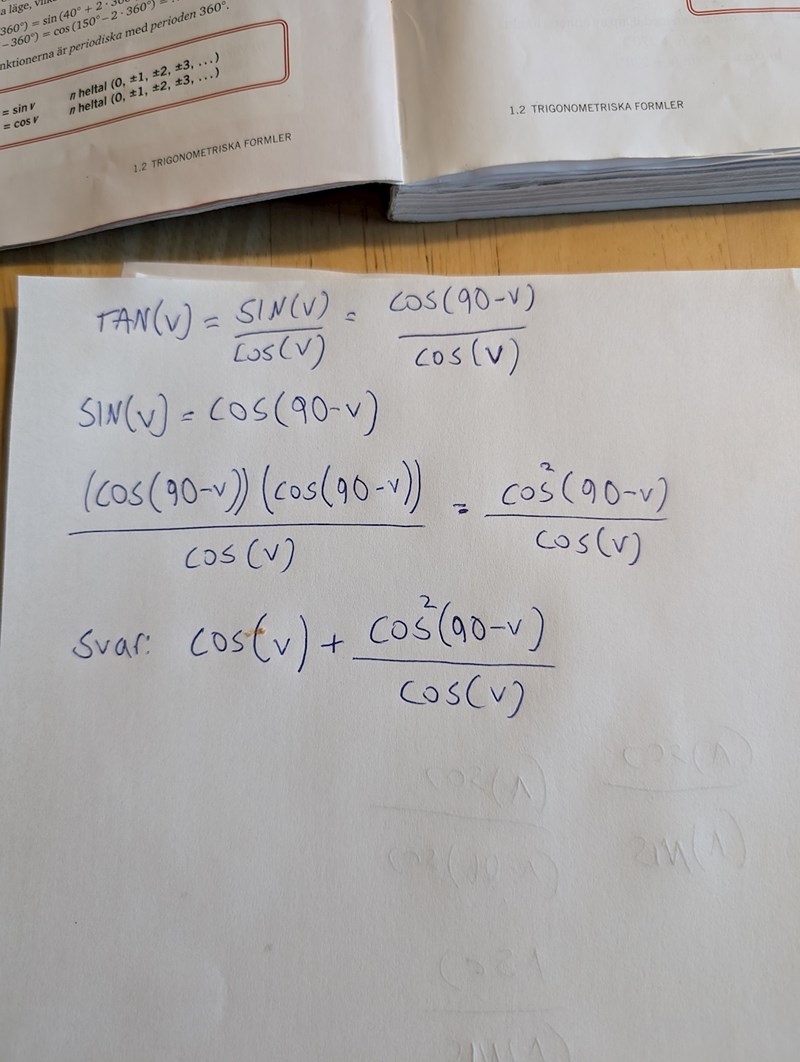 a läge,
360°) = sin (40° + 2 · 360
– 360°) = cos (150° – 2 · 360°) =
nktionerna är periodiska med perioden 360°.
= sin v n heltal (0, ±1, ±2, ±3, …)
= cos v n heltal (0, ±1, ±2, ±3, …)
1.2 TRIGONOMETRISKA FORMLER
1.2 TRIGONOMETRISKA FORMLER
TAN(V) = SIN(V)/COS(V) = COS(90-V)/COS(V)
SIN(V) = COS(90-V)
(COS(90-V))(COS(90-V))/COS(V) = COS²(90-V)/COS(V)
Svar: COS(V) + COS²(90-V)/COS(V)